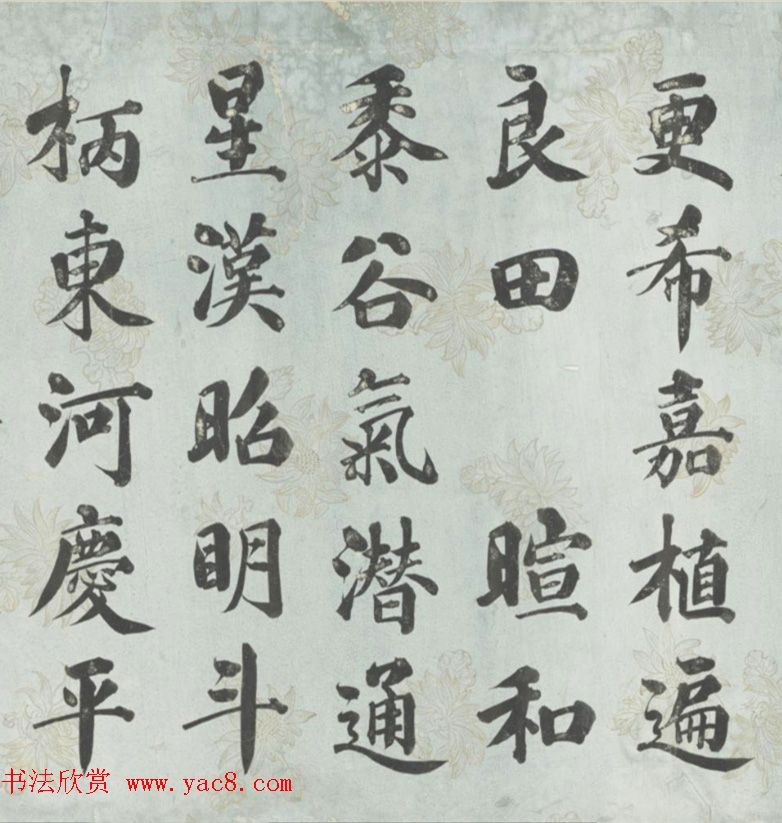 更希嘉植遍
良田 暄和
黍谷氣潛通
星漢昭明斗
柄東河慶平
书法欣赏 www.yac8.com